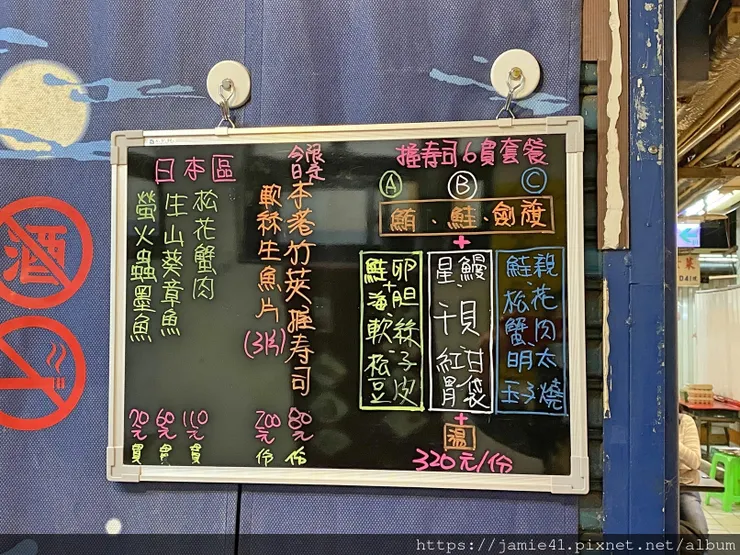 握寿司6貫套餐
A B C
鮪、鮭、劍旗
+
鮭卵
海胆
軟絲
松子
豆皮
星鰻
干貝
紅甘
胃袋
鮭親
松花
蟹肉
明太
玉子燒
+
溫
320元/份
今日限定
本港竹筴握寿司
80元份
軟絲生魚片(3片)
200元份
日本區
松花蟹肉
110元貫
生山葵章魚
60元貫
螢火蟲墨魚
70元貫
酒
https://jamie41.pixnet.net/album